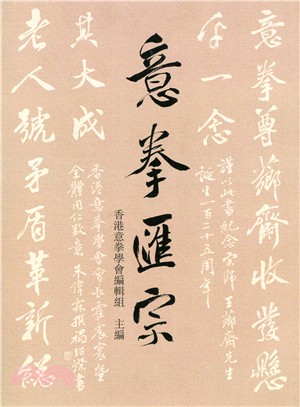 意拳尊薌齋收發懸
于一念
謹以此書紀念宗師王薌齋先生
誕生一百二十五周年
意拳匯宗
香港意拳學會編輯組 主編
老人號矛盾革新總
其大成
香港意拳學會會長霍震寰暨
全體同仁致意 朱偉霖撰